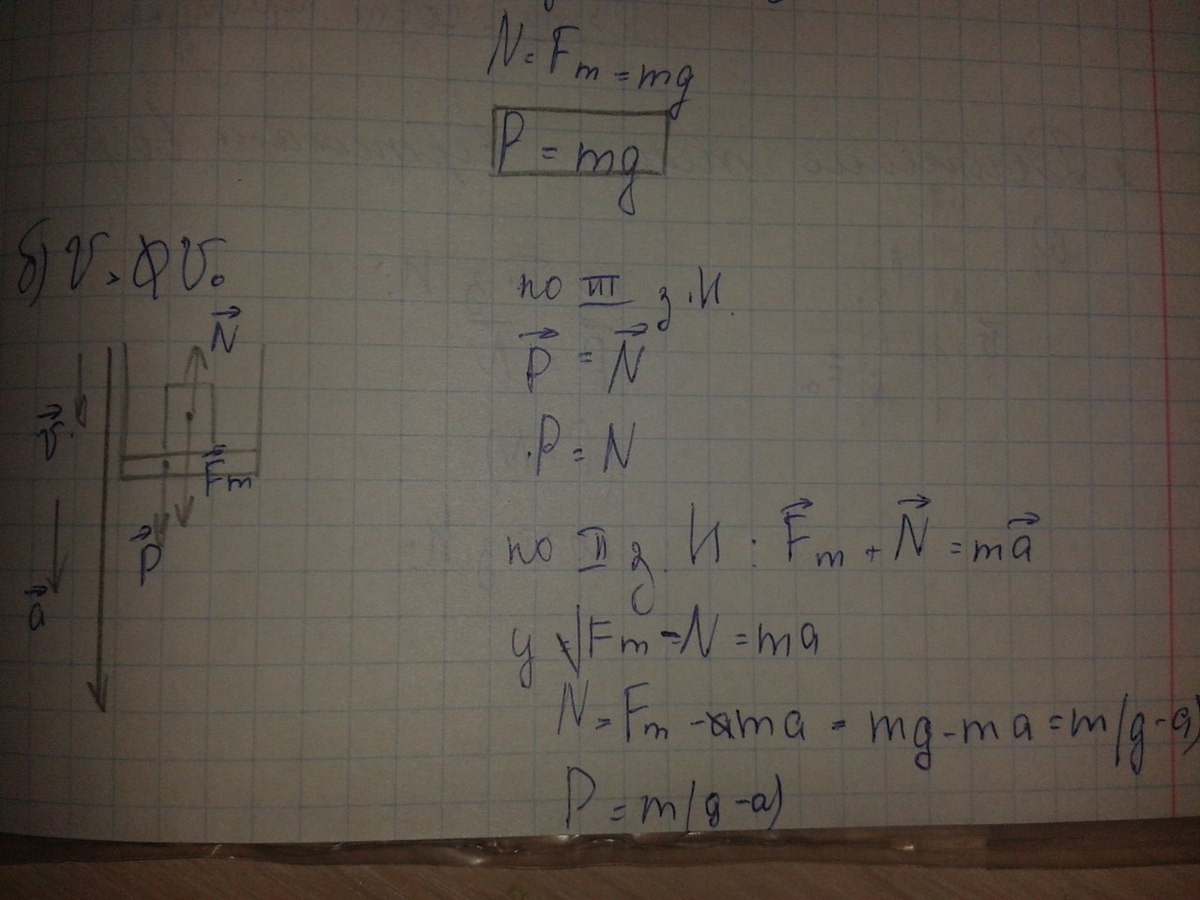 N = Fт = mg
P = mg
б) v > v₀
N⃗
v⃗
F⃗т
P⃗
a⃗
по III з. Н.
P⃗ = N⃗
P = N
по II з. Н : F⃗т + N⃗ = ma⃗
y ↓ Fт - N = ma
N = Fт - ma = mg - ma = m(g-a)
P = m(g-a)